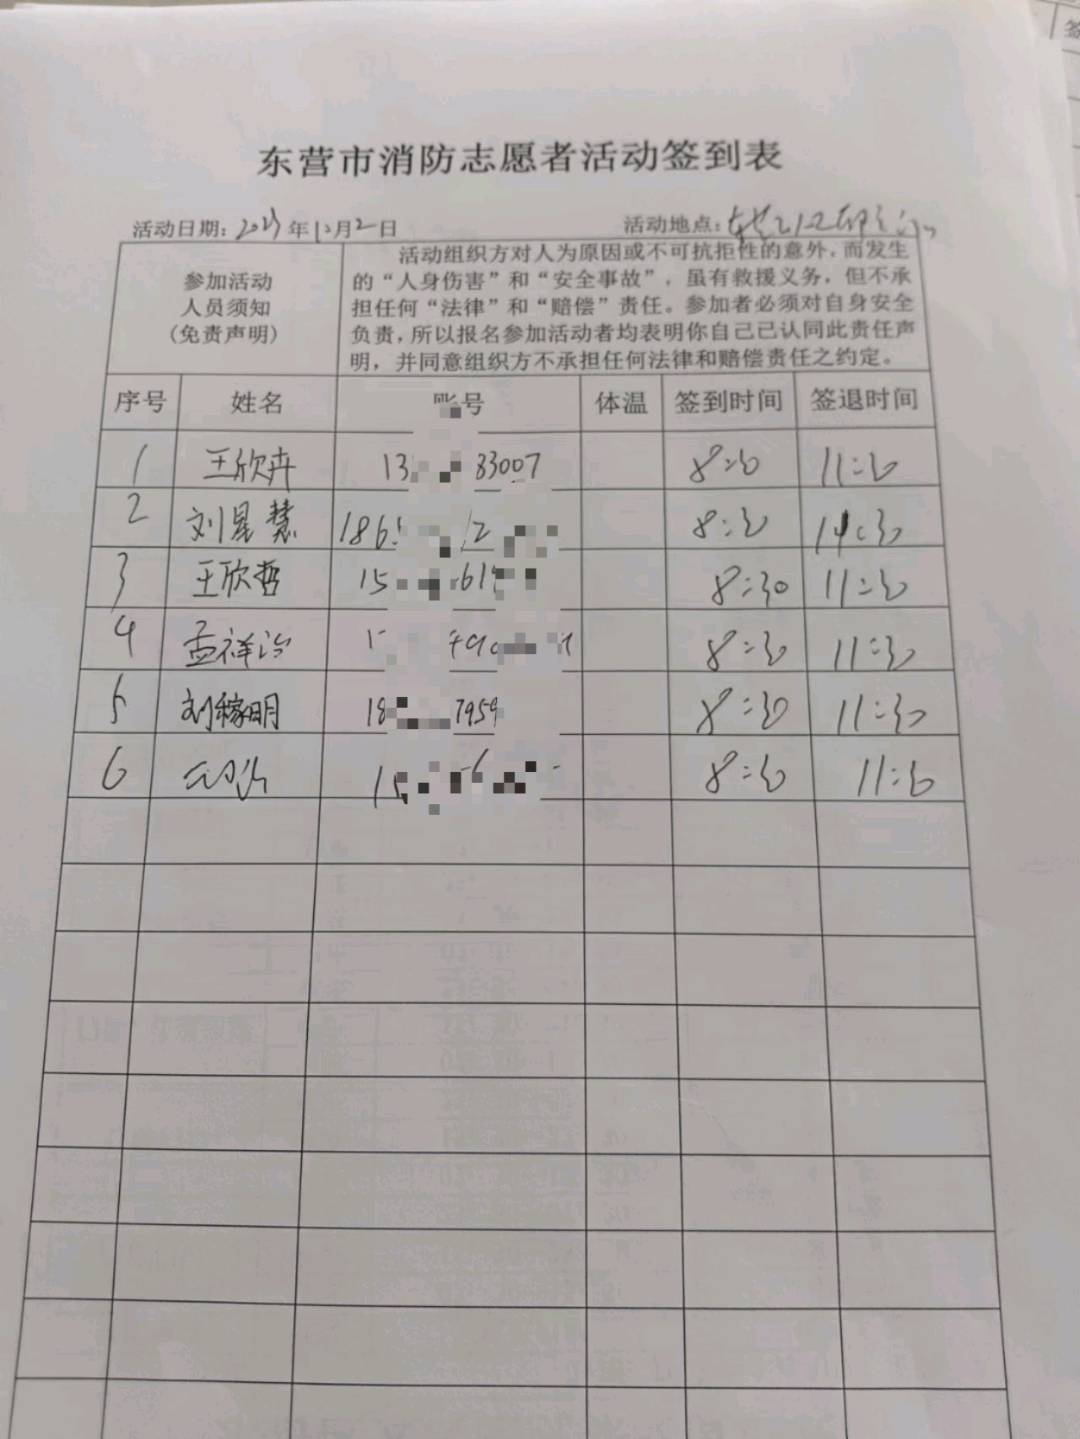 东营市消防志愿者活动签到表
活动日期: 2023年12月2日 活动地点:
参加活动
人员须知
(免责声明)
活动组织方对人为原因或不可抗拒性的意外,而发生
的“人身伤害”和“安全事故”,虽有救援义务,但不承
担任何“法律”和“赔偿”责任。参加者必须对自身安全
负责,所以报名参加活动者均表明你自己已认同此责任声
明,并同意组织方不承担任何法律和赔偿责任之约定。
序号 姓名 账号 体温 签到时间 签退时间
1 王欣卉 13 83007 8:30 11:30
2 刘星慧 186 12 8:30 11:30
3 王欣哲 15 61 8:30 11:30
4 孟祥 8:30 11:30
5 刘稼明 18 7959 8:30 11:30
6 15 8:30 11:30